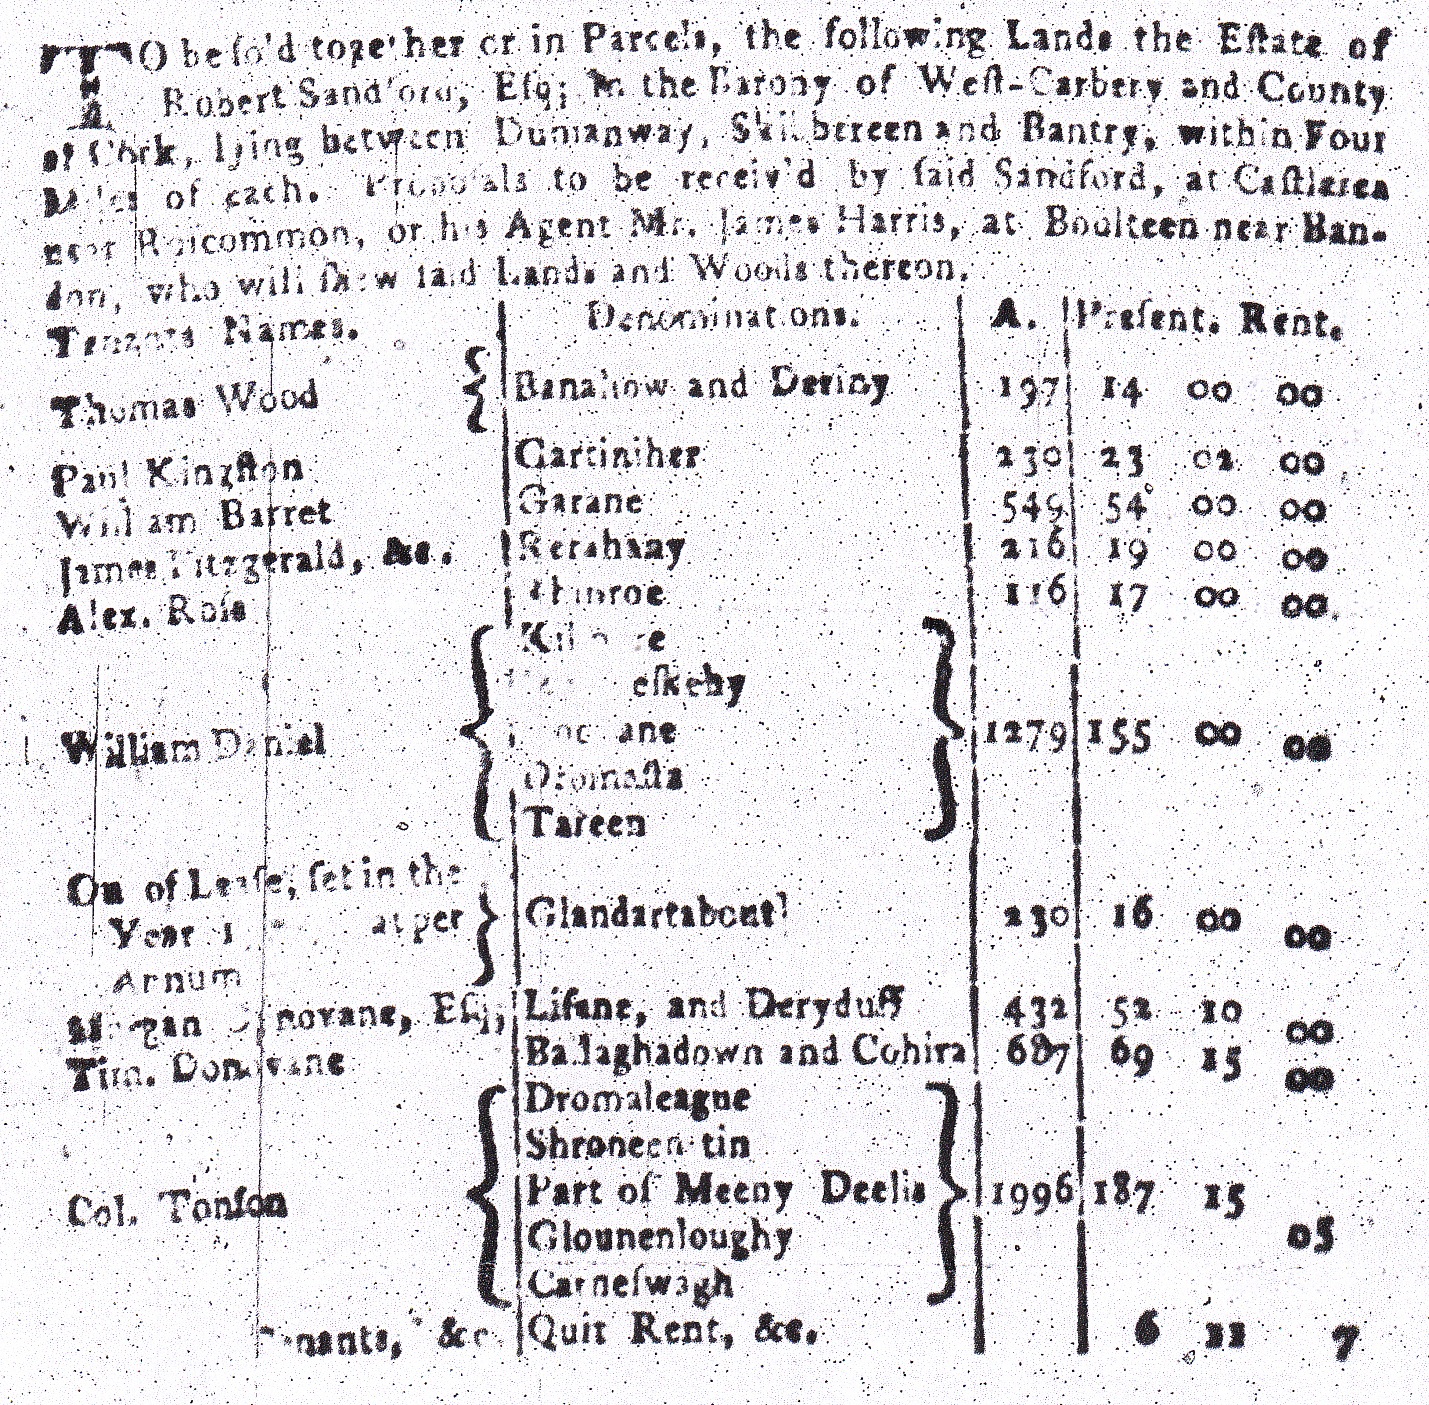 TO be sold together or in Parcels, the following Lands the Estate of
Robert Sandford, Esq; in the Barony of West-Carbery and County
of Cork, lying between Dunmanway, Skibbereen and Bantry, within Four
Miles of each. Proposals to be receiv'd by said Sandford, at Castlerea
near Roscommon, or his Agent Mr. James Harris, at Boulteen near Ban-
don, who will shew said Lands and Woods thereon.
Tenants Names. Denominations. A. Present. Rent.
Thomas Wood Banahow and Deriny 197 14 00 00
Paul Kingston Gartiniher 230 23 02 00
William Barret Garane 549 54 00 00
James Fitzgerald, &c. 216 19 00 00
Alex. Ross 116 17 00 00
eskehy
William Daniel ane 1279 155 00 00
Dromasta
Tareen
Out of Lease, set in the
Year at per Glandartabout 230 16 00 00
Annum
Morgan Donovane, Esq; Lisane, and Deryduff 432 52 10 00
Tim. Donovane Ballaghadown and Cohira 687 69 15 00
Dromaleague
Shroneen tin
Col. Tonson Part of Meeny Deelis 1996 187 15 05
Glounenloughy
Carneswagh
Tenants, &c. Quit Rent, &c. 6 11 7